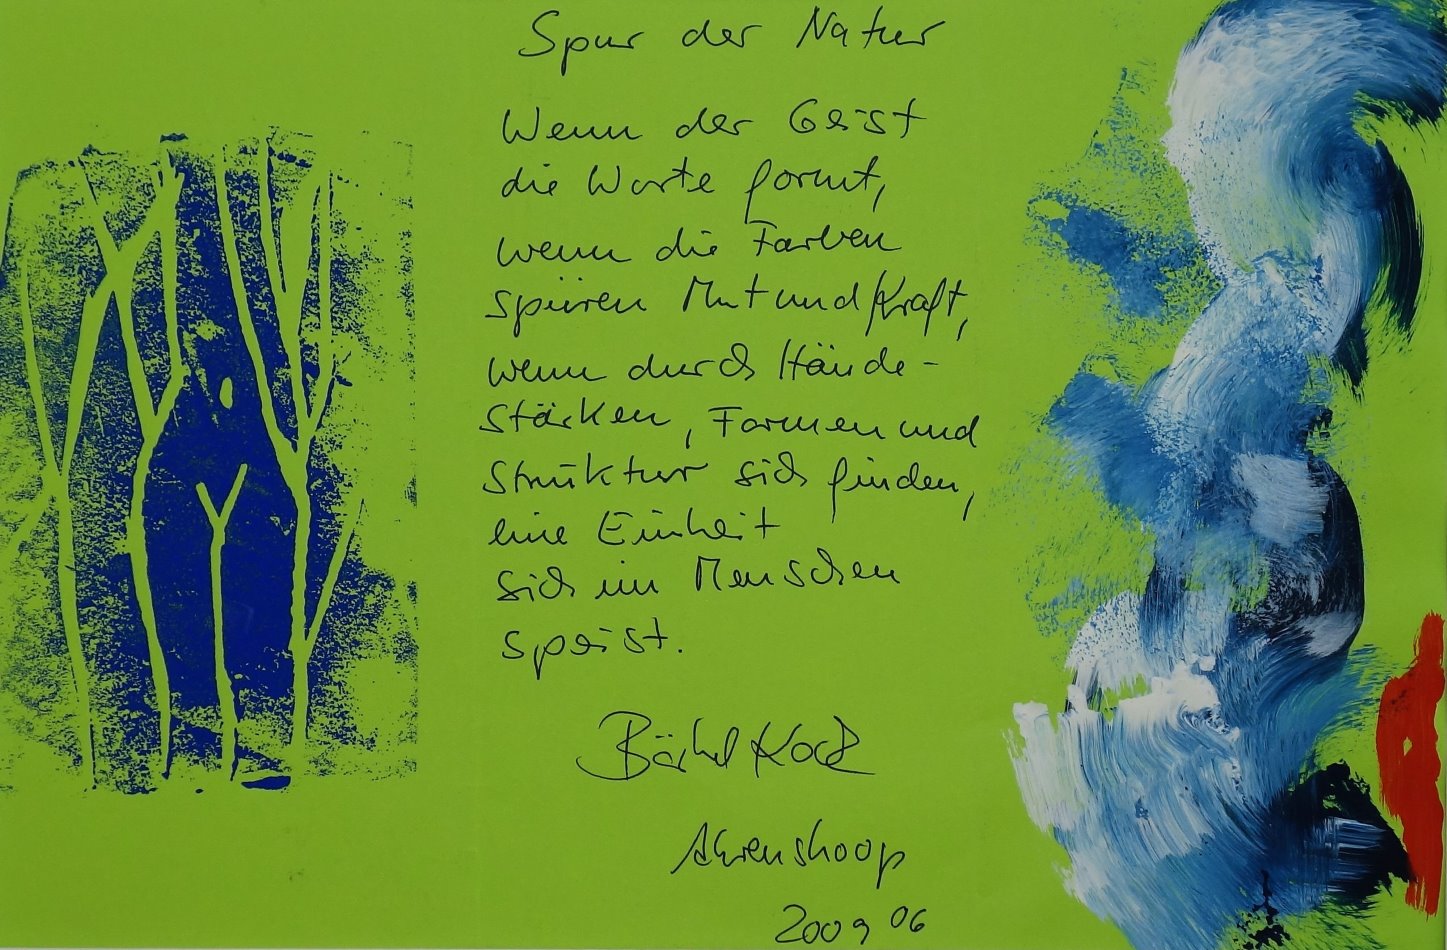 Spur der Natur
Wenn der Geist
die Worte formt,
wenn die Farben
spüren Mut und Kraft,
wenn durch Hände-
stärken, Formen und
Struktur sich finden,
eine Einheit
sich im Menschen
speist.
Bärbel Koch
Ahrenshoop
2009 06